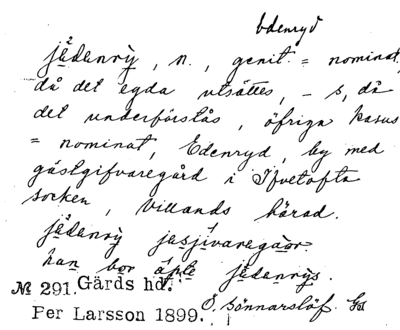 Edenryd
jädenrỳ, n., genit. = nominat,
då det egda utsättes, – s, då
det underförstås, öfriga kasus
= nominat, Edenryd, by med
gästgifvaregård i Ifvetofta
socken, Villands härad.
jädenrỳ jasjivaregåor.
han bor äple jädenrỳs.
№ 291. Gärds hd.
Per Larsson 1899. Ö. Sönnarslöf.